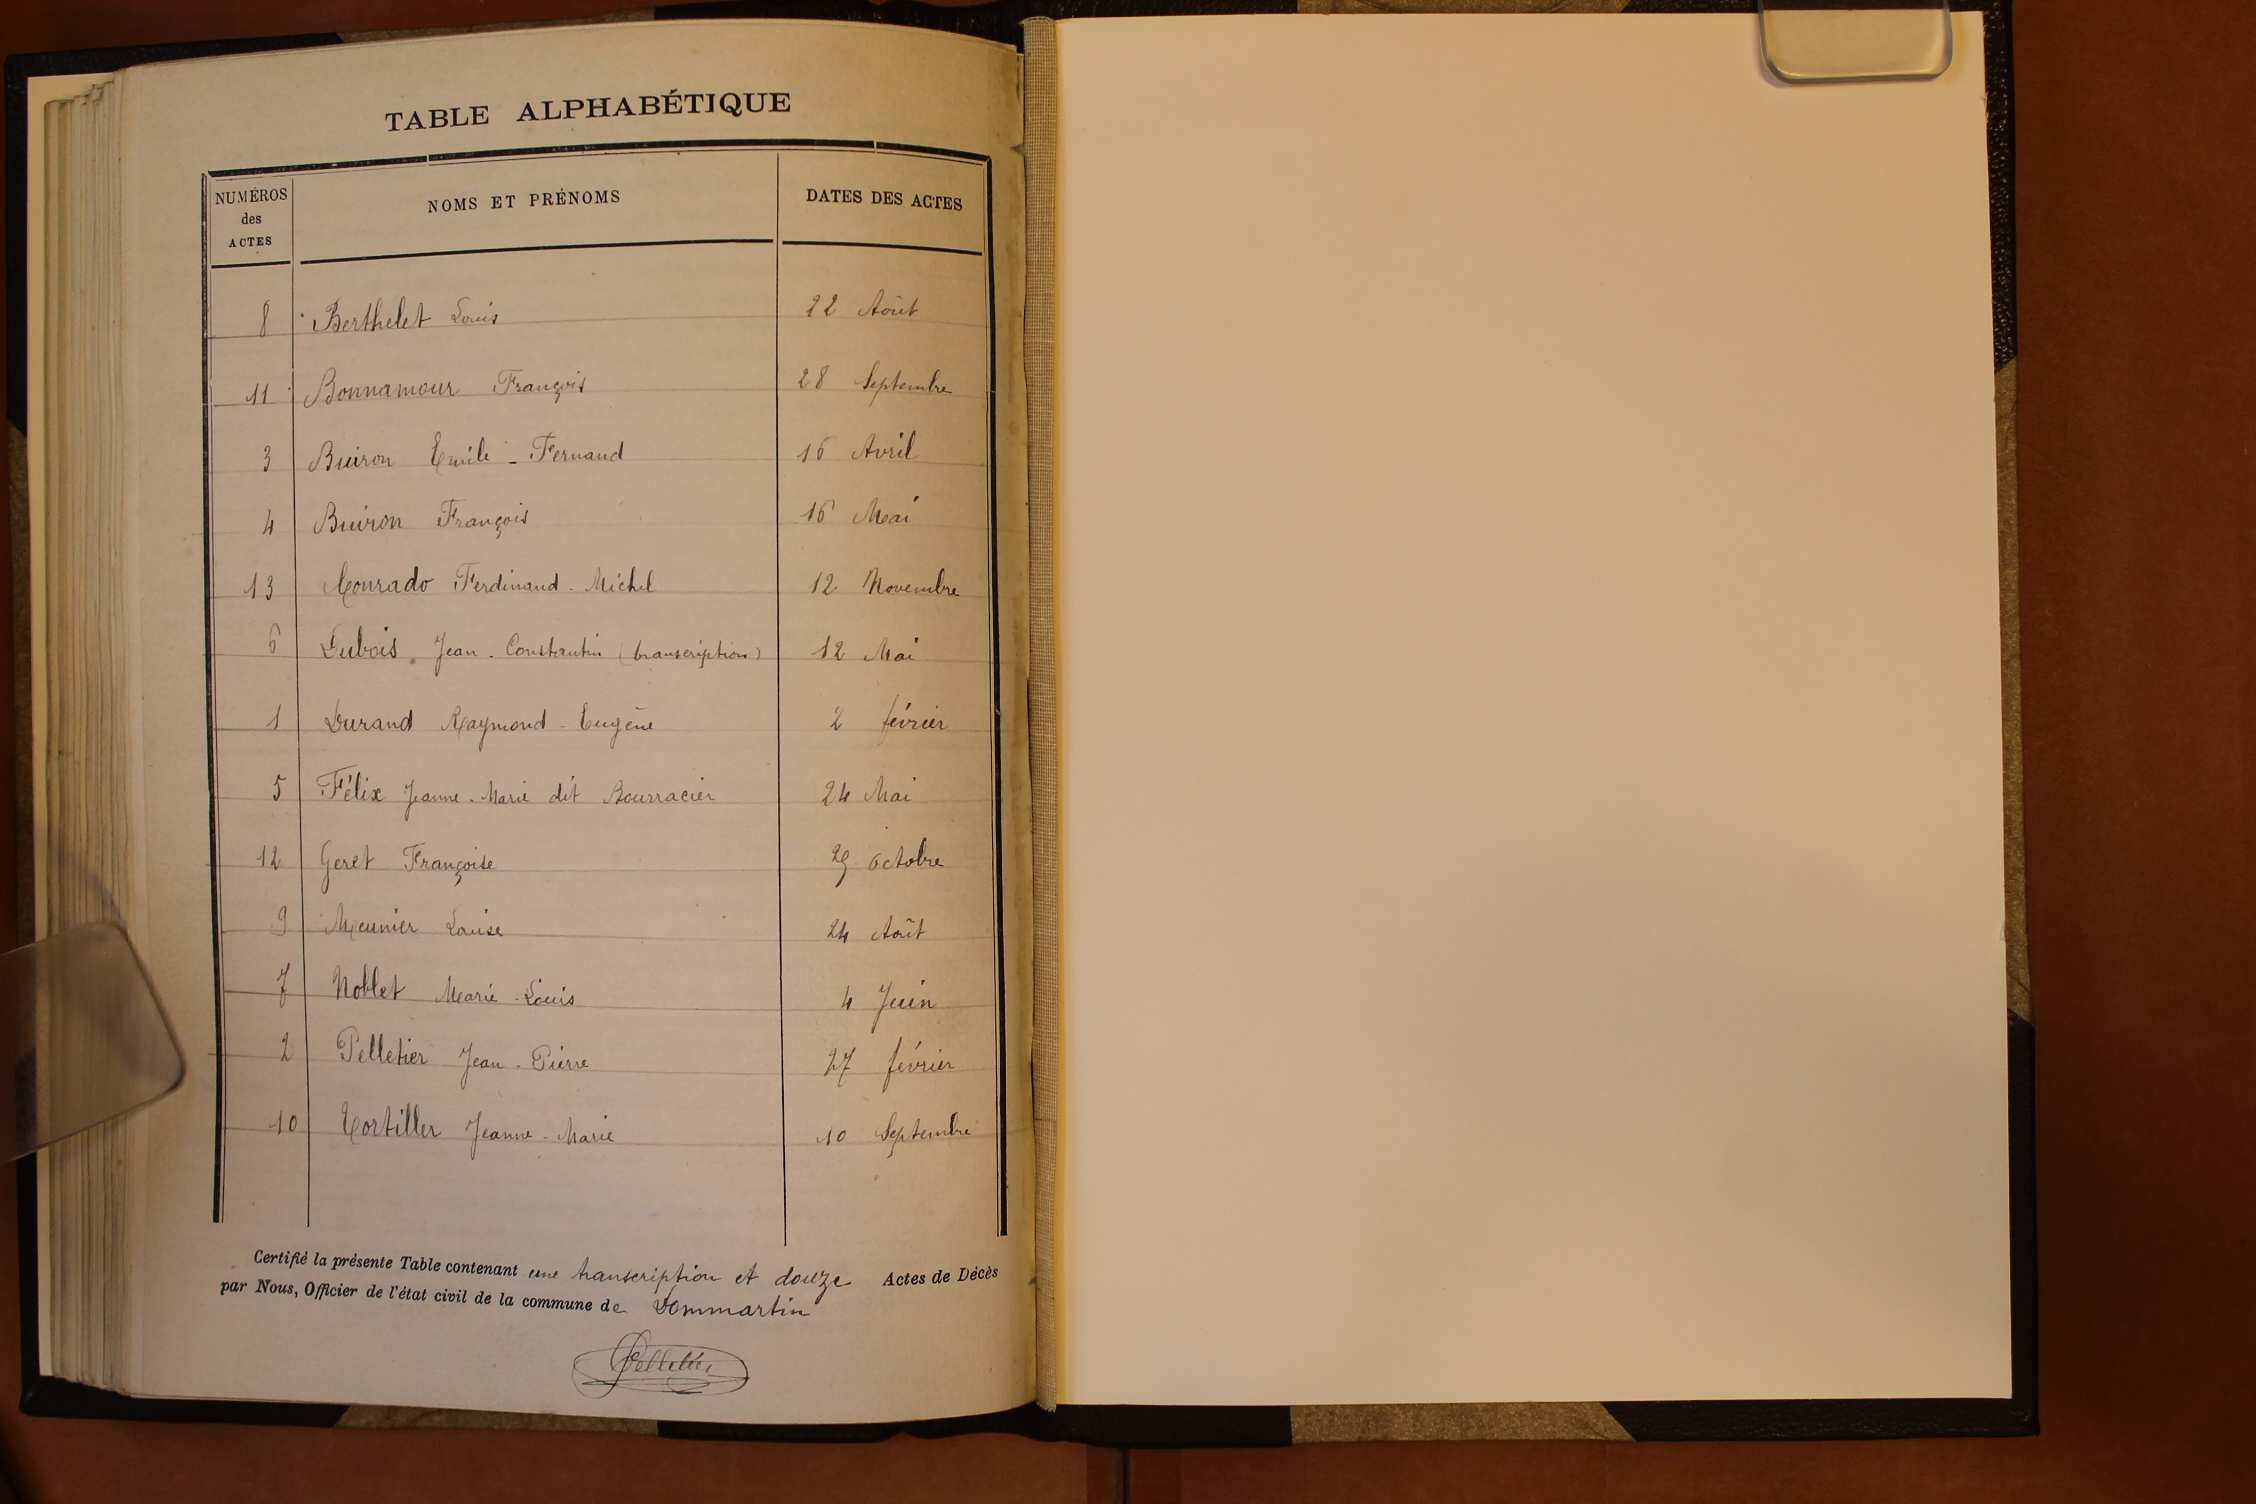 TABLE ALPHABÉTIQUE
NUMÉROS des ACTES NOMS ET PRÉNOMS DATES DES ACTES
8 Berthelet Louis 22 Août
11 Bonnamour François 28 Septembre
3 Buiron Emile - Fernand 16 Avril
4 Buiron François 16 Mai
13 Conrado Ferdinand - Michel 12 Novembre
6 Dubois Jean - Constantin (transcription) 12 Mai
1 Durand Raymond - Eugène 2 février
5 Félix Jeanne - Marie dit Bourracier 24 Mai
12 Geret Françoise 29 octobre
9 Meunier Louise 24 Août
7 Noblet Marie - Louis 4 Juin
2 Pelletier Jean - Pierre 27 février
10 Tortiller Jeanne - Marie 10 Septembre
Certifié la présente Table contenant une transcription et douze Actes de Décès
par Nous, Officier de l'état civil de la commune de Dommartin
Pelletier